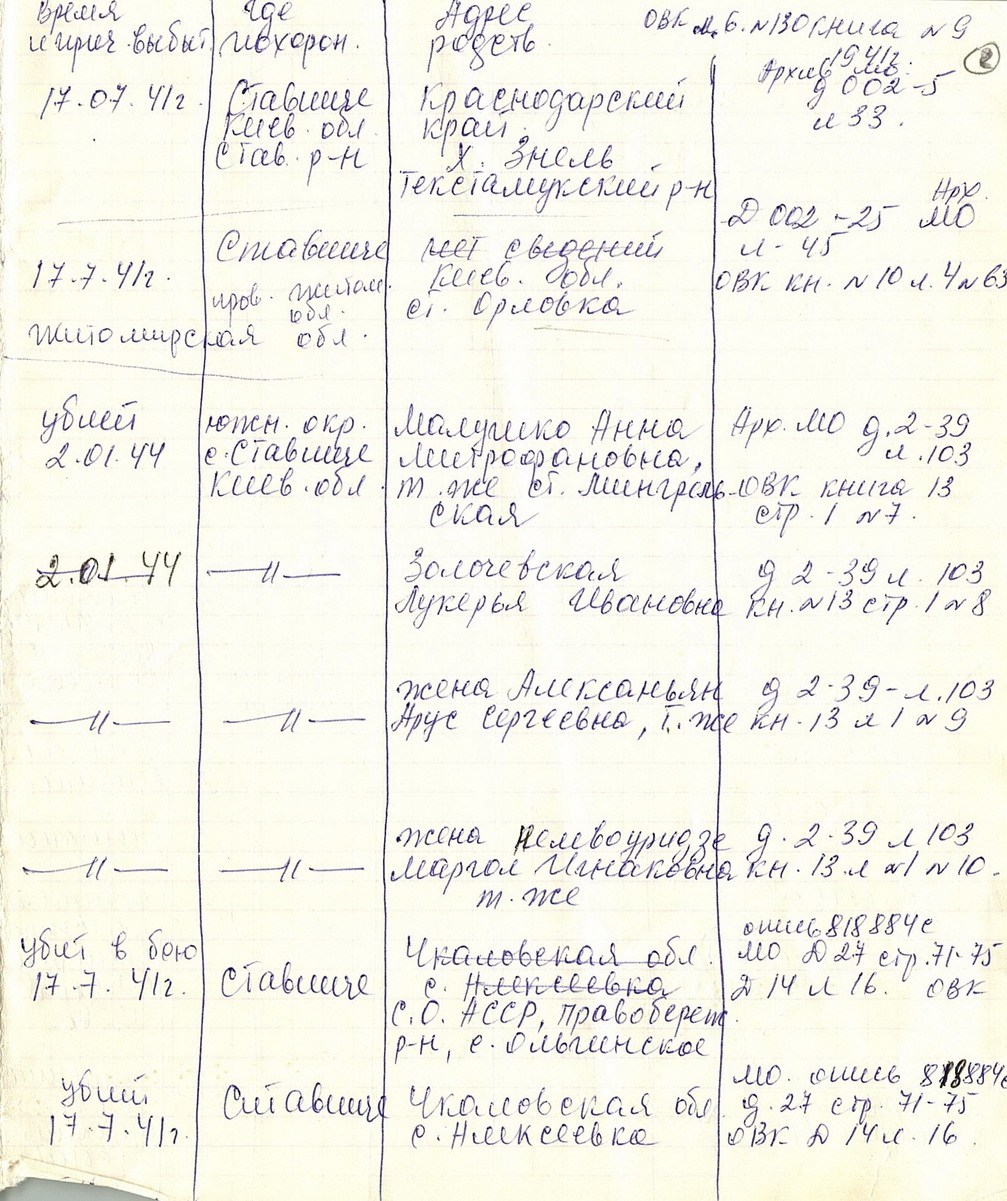 Время Где Адрес ОВК м.б. №130 книга №9
и прич. выбыт. похорон. родств. 1941г. 2
Архив МО.
17.07.41г. Ставище Краснодарский д 002-5
Киев. обл. край. л 33.
Став. р-н х. Знель
Текстамукский р-н Арх.
Д 002-25 МО
Ставище нет сведений л-45
17.7.41г. Киев. обл. ОВК кн. №10 л.4 №63
пров. житом. обл. ст. Орловка
Житомирская обл.
убит южн. окр. Малушко Анна Арх. МО д.2-39
2.01.44 с. Ставище Митрофановна, л.103
Киев. обл. т. же ст. Мингрель- ОВК книга 13
ская стр. 1 №7.
2.01.44 —"— Золочевская д 2-39 л. 103
Лукерья Ивановна кн. №13 стр. 1 №8
жена Алексаньян д 2-39-л.103
—"— —"— Арус Сергеевна, т. же кн. 13 л 1 №9
жена д. 2-39 л 103
—"— —"— Маргол Игнаковна кн. 13 л №1 №10.
т. же
опись 818884с
убит в бою Чкаловская обл. МО Д 27 стр. 71-75
17.7.41г. Ставище с. Алексеевка Д 14 л 16. ОВК
С.О. АССР, Правобереж.
р-н, с. Ольгинское
убит МО. опись 818884с
Ставище Чкаловская обл. д. 27 стр. 71-75
17.7.41г. с. Алексеевка ОВК Д 14 л. 16.